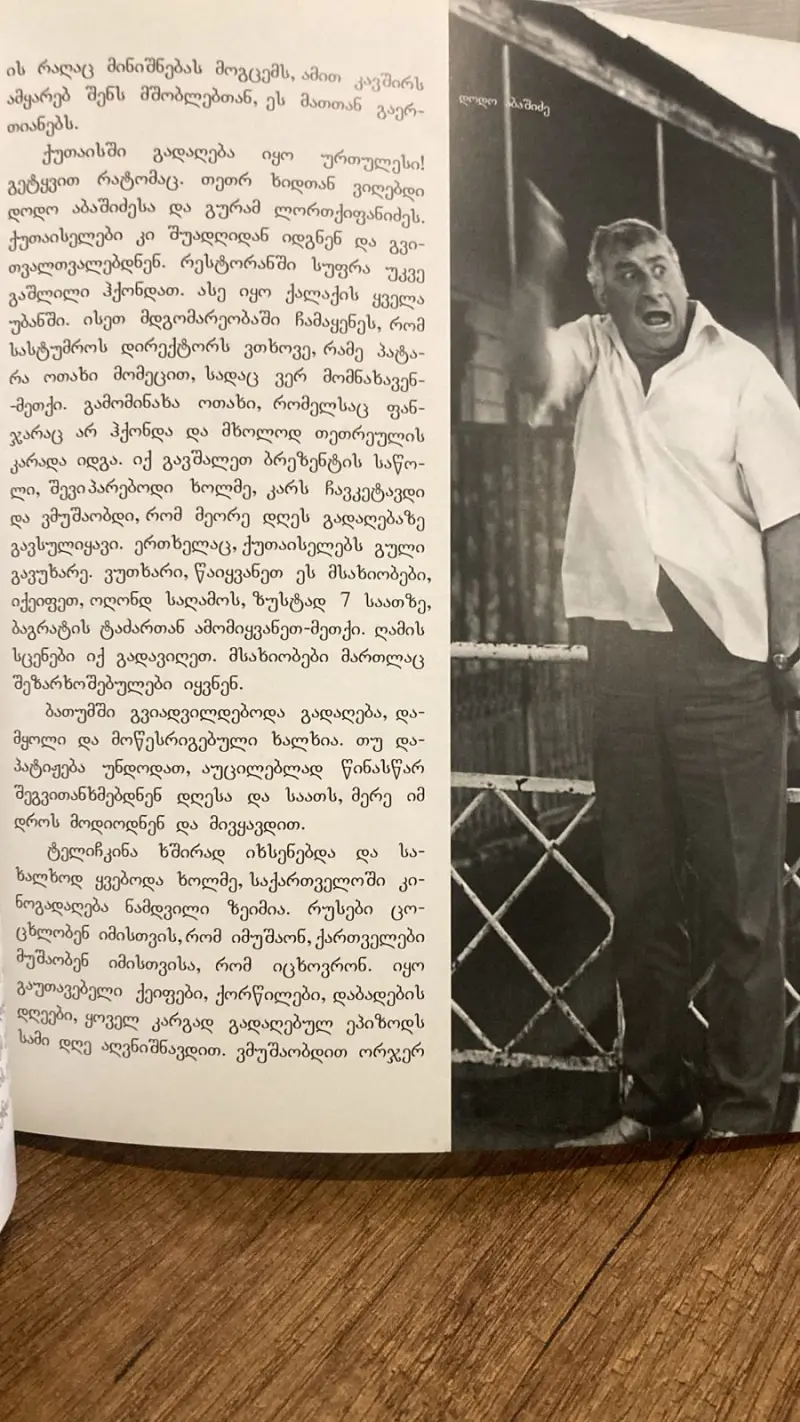 ის რაღაც მინიშნებას მოგცემს, ამით კავშირს
ამყარებ შენს მშობლებთან, ეს მათთან გაერ-
თიანებს.
ქუთაისში გადაღება იყო ურთულესი!
გეტყვით რატომაც. თეთრ ხიდთან ვიღებდი
დოდო აბაშიძესა და გურამ ლორთქიფანიძეს.
ქუთაისელები კი შუადღიდან იდგნენ და გვი-
თვალთვალებდნენ. რესტორანში სუფრა უკვე
გაშლილი ჰქონდათ. ასე იყო ქალაქის ყველა
უბანში. ისეთ მდგომარეობაში ჩამაყენეს, რომ
სასტუმროს დირექტორს ვთხოვე, რამე პატა-
რა ოთახი მომეცით, სადაც ვერ მომნახავენ-
-მეთქი. გამომინახა ოთახი, რომელსაც ფან-
ჯარაც არ ჰქონდა და მხოლოდ თეთრეულის
კარადა იდგა. იქ გავშალეთ ბრეზენტის საწო-
ლი, შევიპარებოდი ხოლმე, კარს ჩავკეტავდი
და ვმუშაობდი, რომ მეორე დღეს გადაღებაზე
გავსულიყავი. ერთხელაც, ქუთაისელებს გული
გავუხარე. ვუთხარი, წაიყვანეთ ეს მსახიობები,
იქეიფეთ, ოღონდ საღამოს, ზუსტად 7 საათზე,
ბაგრატის ტაძართან ამომიყვანეთ-მეთქი. ღამის
სცენები იქ გადავიღეთ. მსახიობები მართლაც
შეზარხოშებულები იყვნენ.
ბათუმში გვიადვილდებოდა გადაღება, და-
მყოლი და მოწესრიგებული ხალხია. თუ და-
პატიჟება უნდოდათ, აუცილებლად წინასწარ
შეგვითანხმებდნენ დღესა და საათს, მერე იმ
დროს მოდიოდნენ და მივყავდით.
ტელიჩკინა ხშირად იხსენებდა და სა-
ხალხოდ ყვებოდა ხოლმე, საქართველოში კი-
ნოგადაღება ნამდვილი ზეიმია. რუსები ცო-
ცხლობენ იმისთვის, რომ იმუშაონ, ქართველები
მუშაობენ იმისთვისა, რომ იცხოვრონ. იყო
გაუთავებელი ქეიფები, ქორწილები, დაბადების
დღეები, ყოველ კარგად გადაღებულ ეპიზოდს
სამი დღე აღვნიშნავდით. ვმუშაობდით ორჯერ
დოდო აბაშიძე